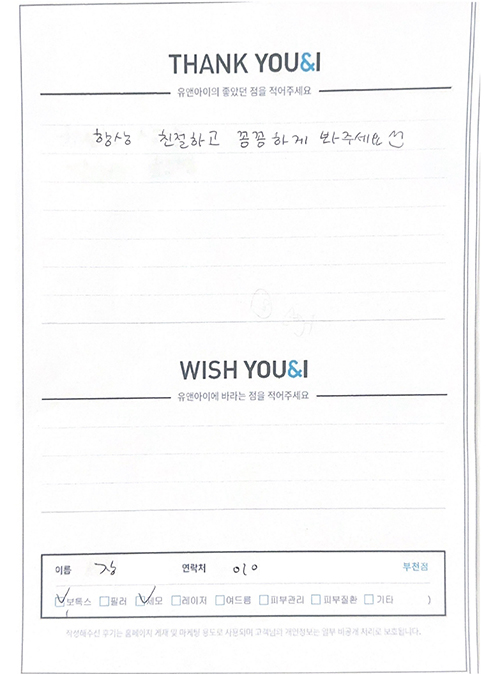 THANK YOU&I
유앤아이의 좋았던 점을 적어주세요
항상 친절하고 꼼꼼하게 봐주세요
WISH YOU&I
유앤아이에 바라는 점을 적어주세요
이름 장 연락처 010 부천점
보톡스 필러 제모 레이저 여드름 피부관리 피부질환 기타 )
작성해주신 후기는 홈페이지 게재 및 마케팅 용도로 사용되며 고객님의 개인정보는 일부 비공개 처리로 보호됩니다.